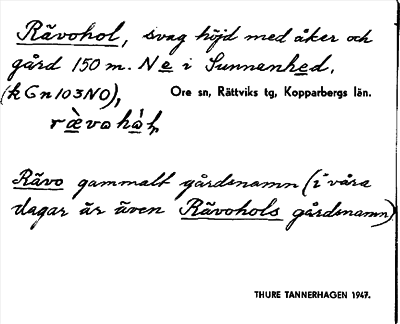 Rävohol, svag höjd med åker och
gård 150 m. Ne i Sunnanhed.
(k Gn 103 NO), Ore sn, Rättviks tg, Kopparbergs län.
rä̀vohåł
Rävo gammalt gårdsnamn (i våra
dagar är även Rävohols gårdsnamn)
THURE TANNERHAGEN 1947.